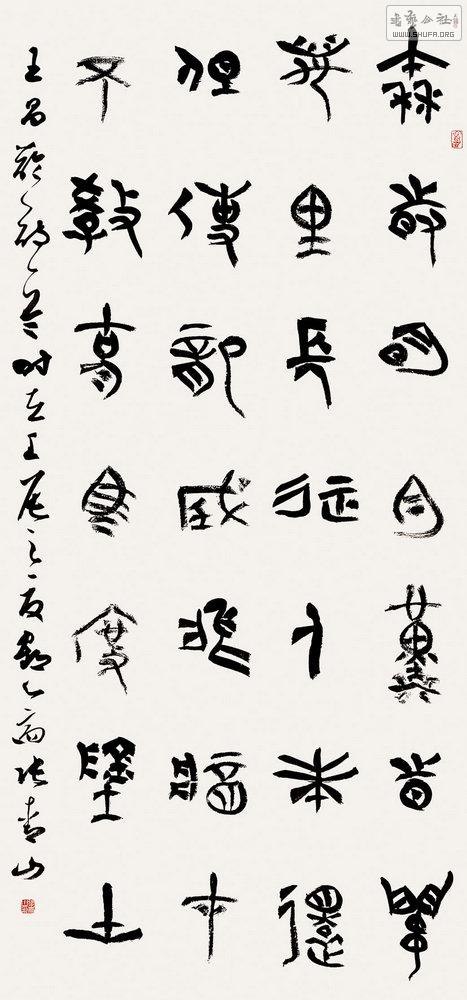 秦時明月漢時關
萬里長征人未還
但使龍城飛將在
不教胡馬度陰山
王昌齡 时在壬 之夏 张青山
書法公社
WWW.SHUFA.ORG